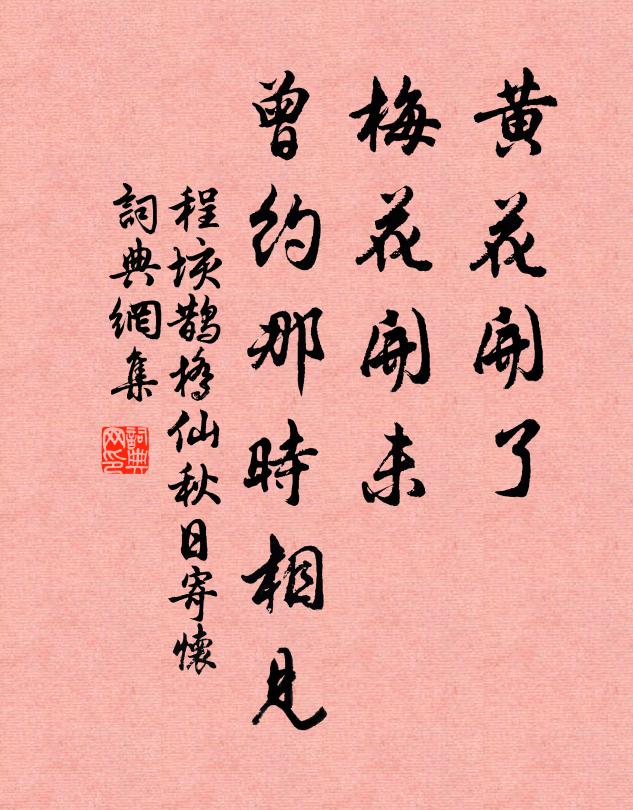 黄花開了
梅花開未
曾約那時相見
程垓鵲橋仙秋日寄懷
詞典網集
詞典网印